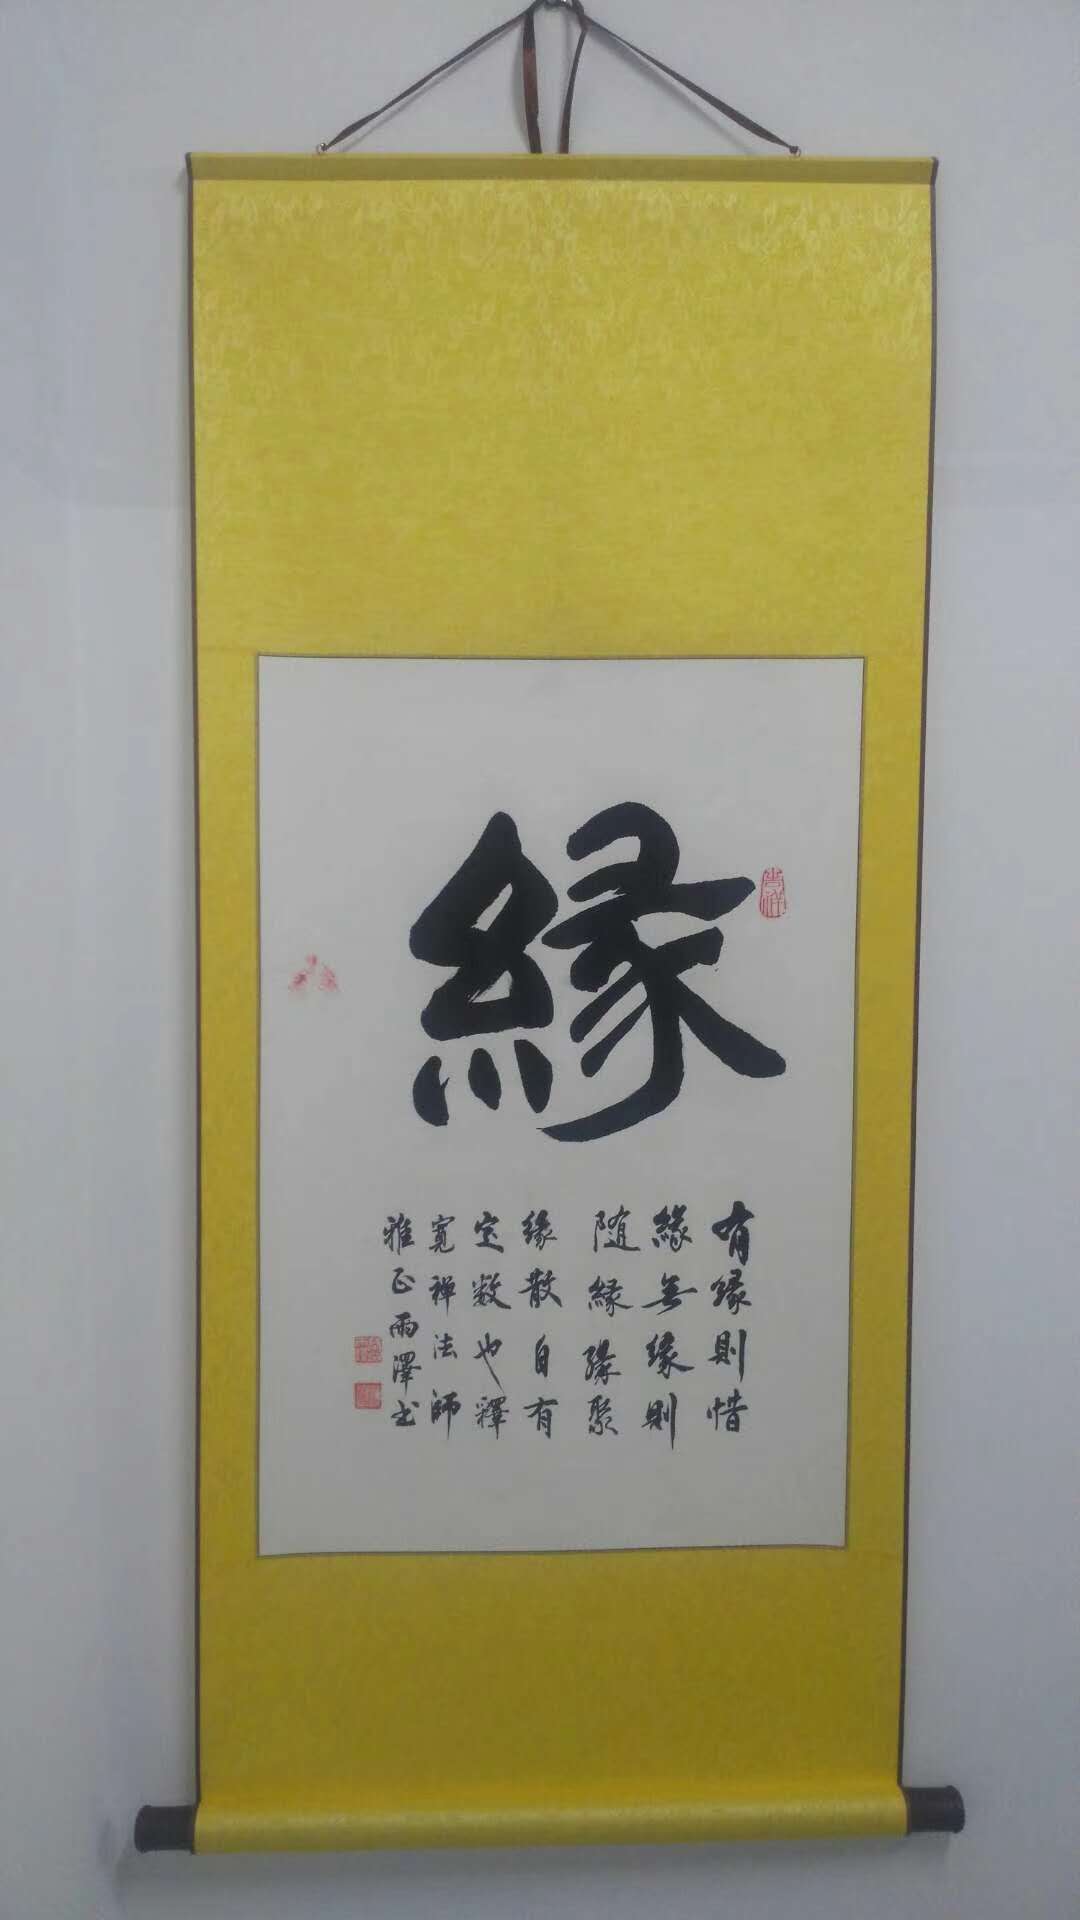 緣
吉祥
有緣則惜
緣無緣則
随緣緣聚
緣散自有
定数也釋
寬禅法師
雅正雨澤书